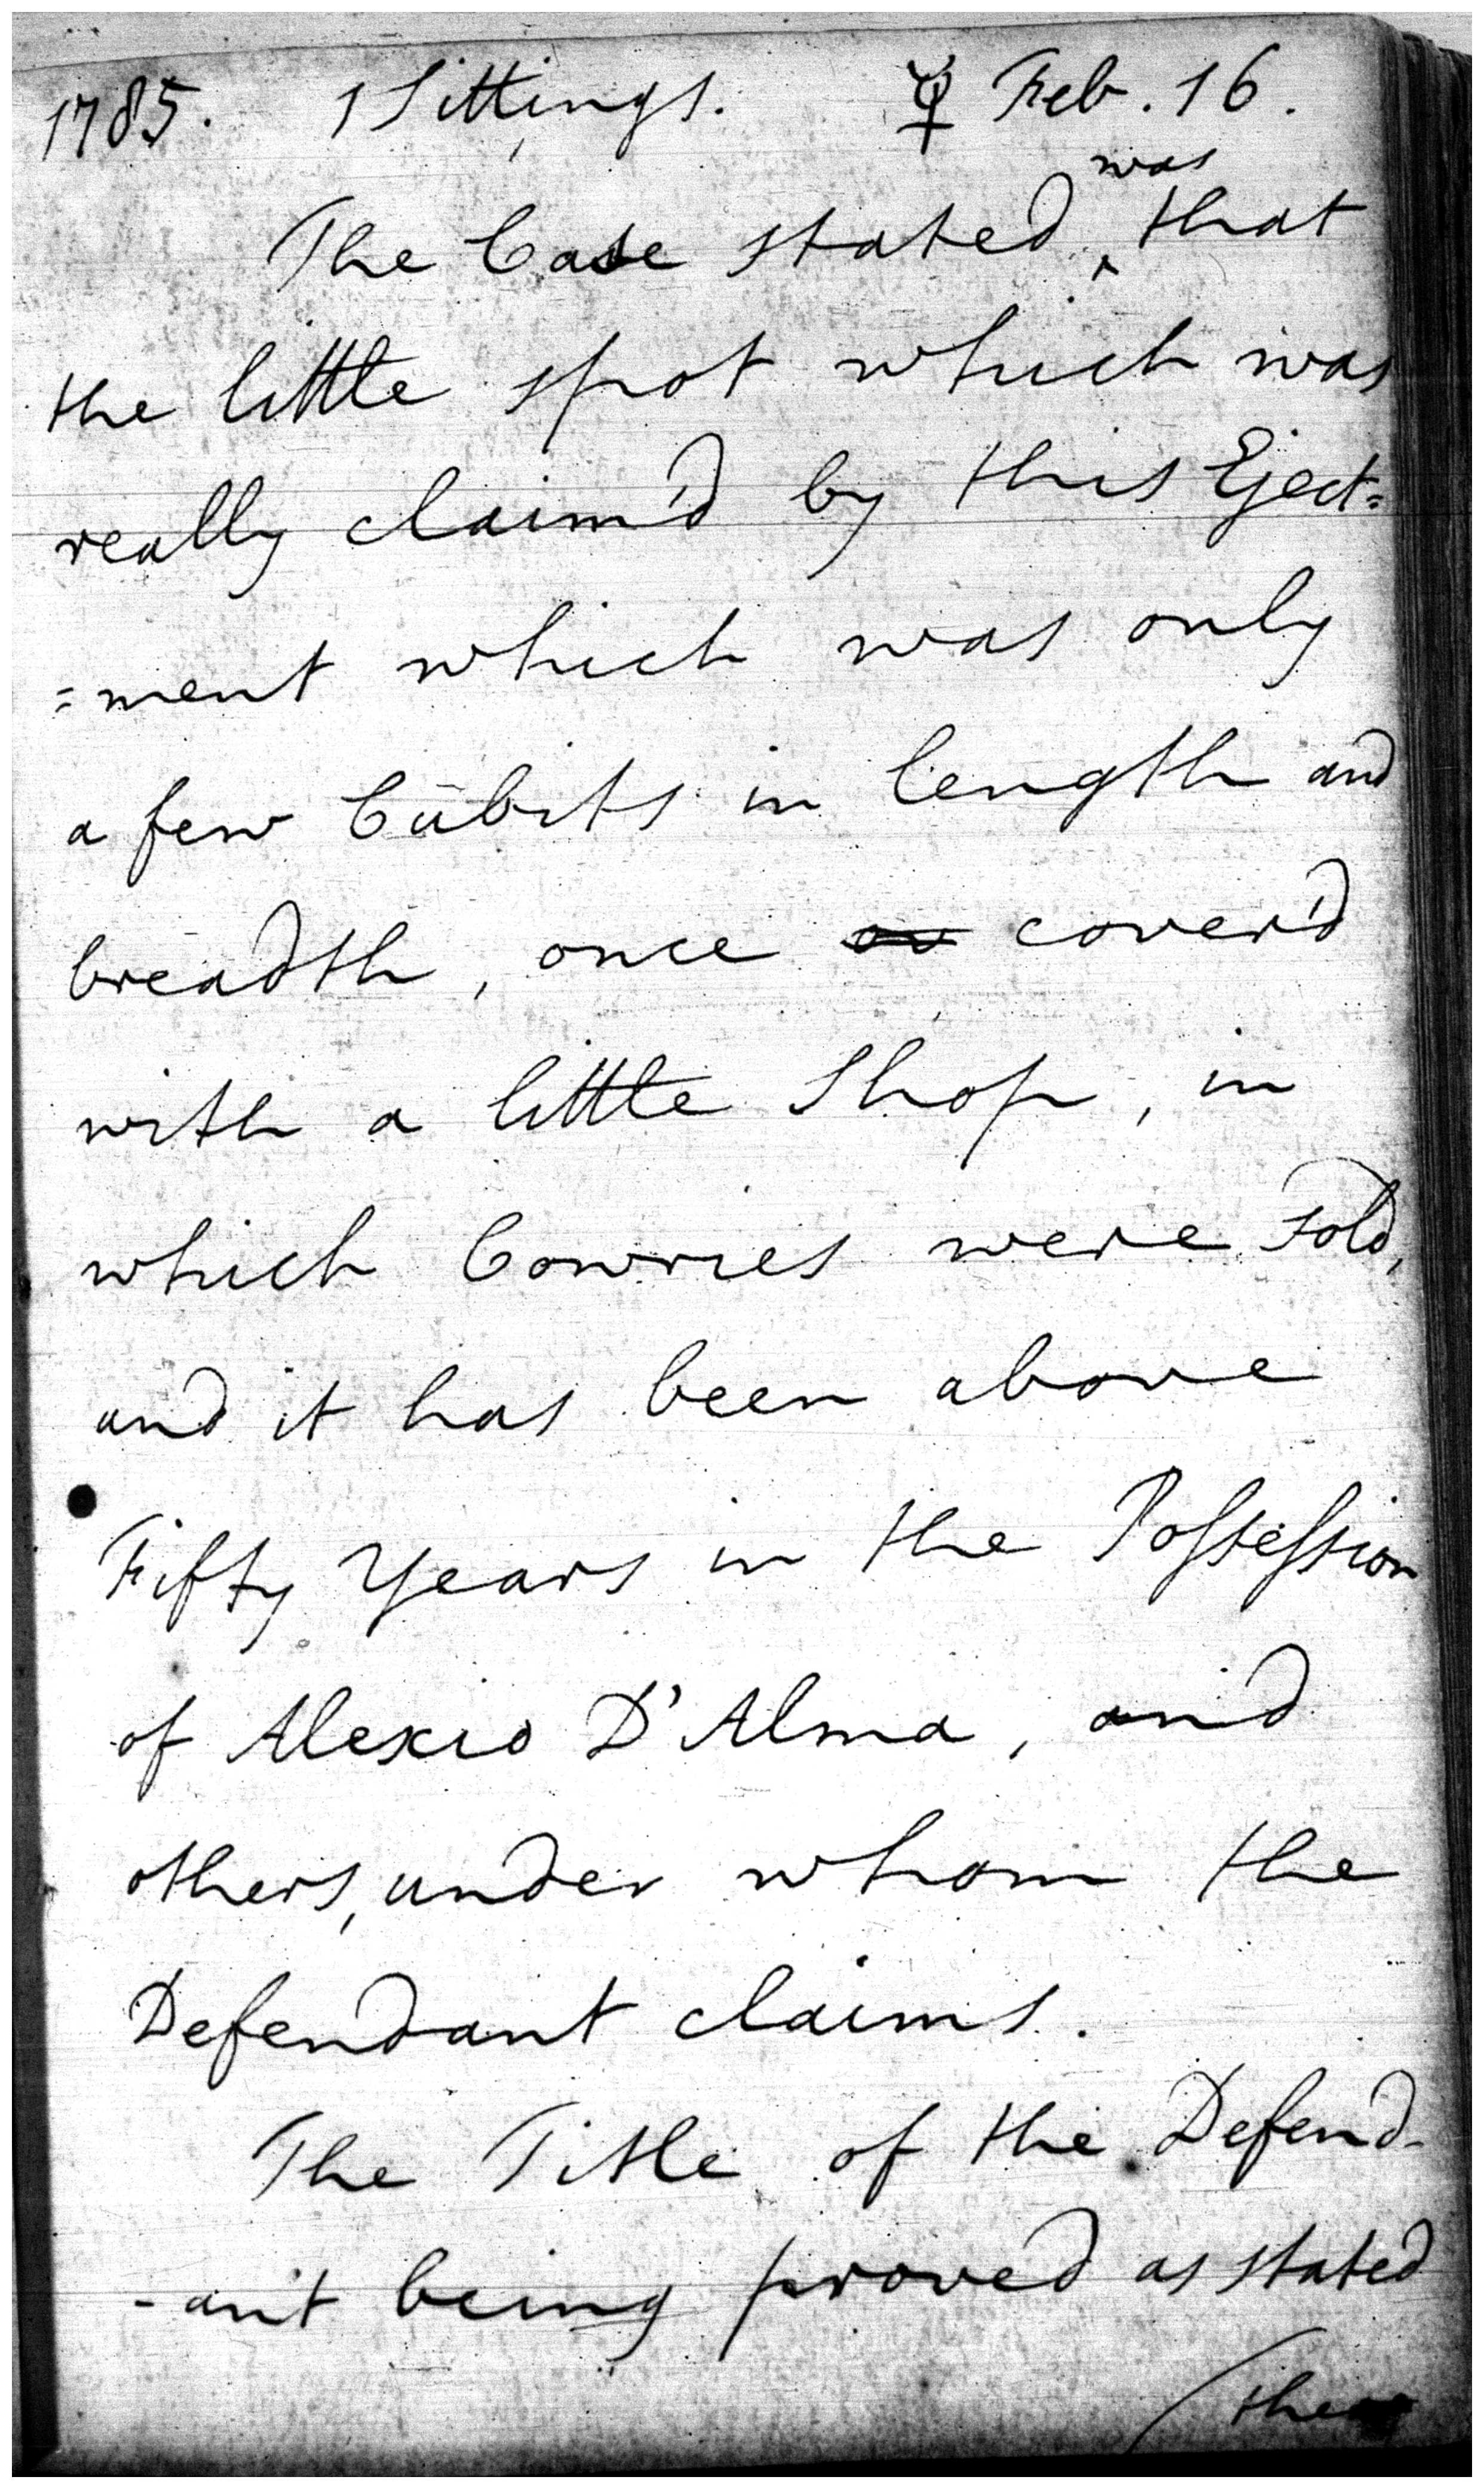 1785. 1 Sittings. ☿ Feb. 16.
was
The Case stated ‸ that
the little spot which was
really claim'd by this Eject=
=ment which was only
a few Cubits in length and
breadth, once ov cover'd
with a little Shop, in
which Cowries were sold,
and it has been above
Fifty Years in the Possession
of Alexio D'Alma, and
others, under whom the
Defendant claims.
The Title of the Defend-
-ant being proved as stated
the